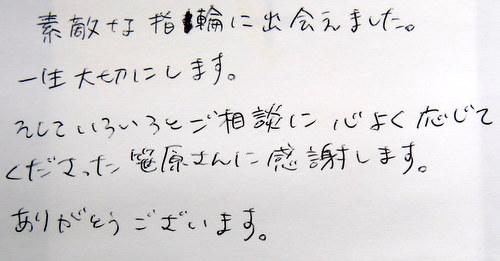 素敵な指輪に出会えました。
一生大切にします。
そしていろいろとご相談に心よく応じて
くださった笹原さんに感謝します。
ありがとうございます。